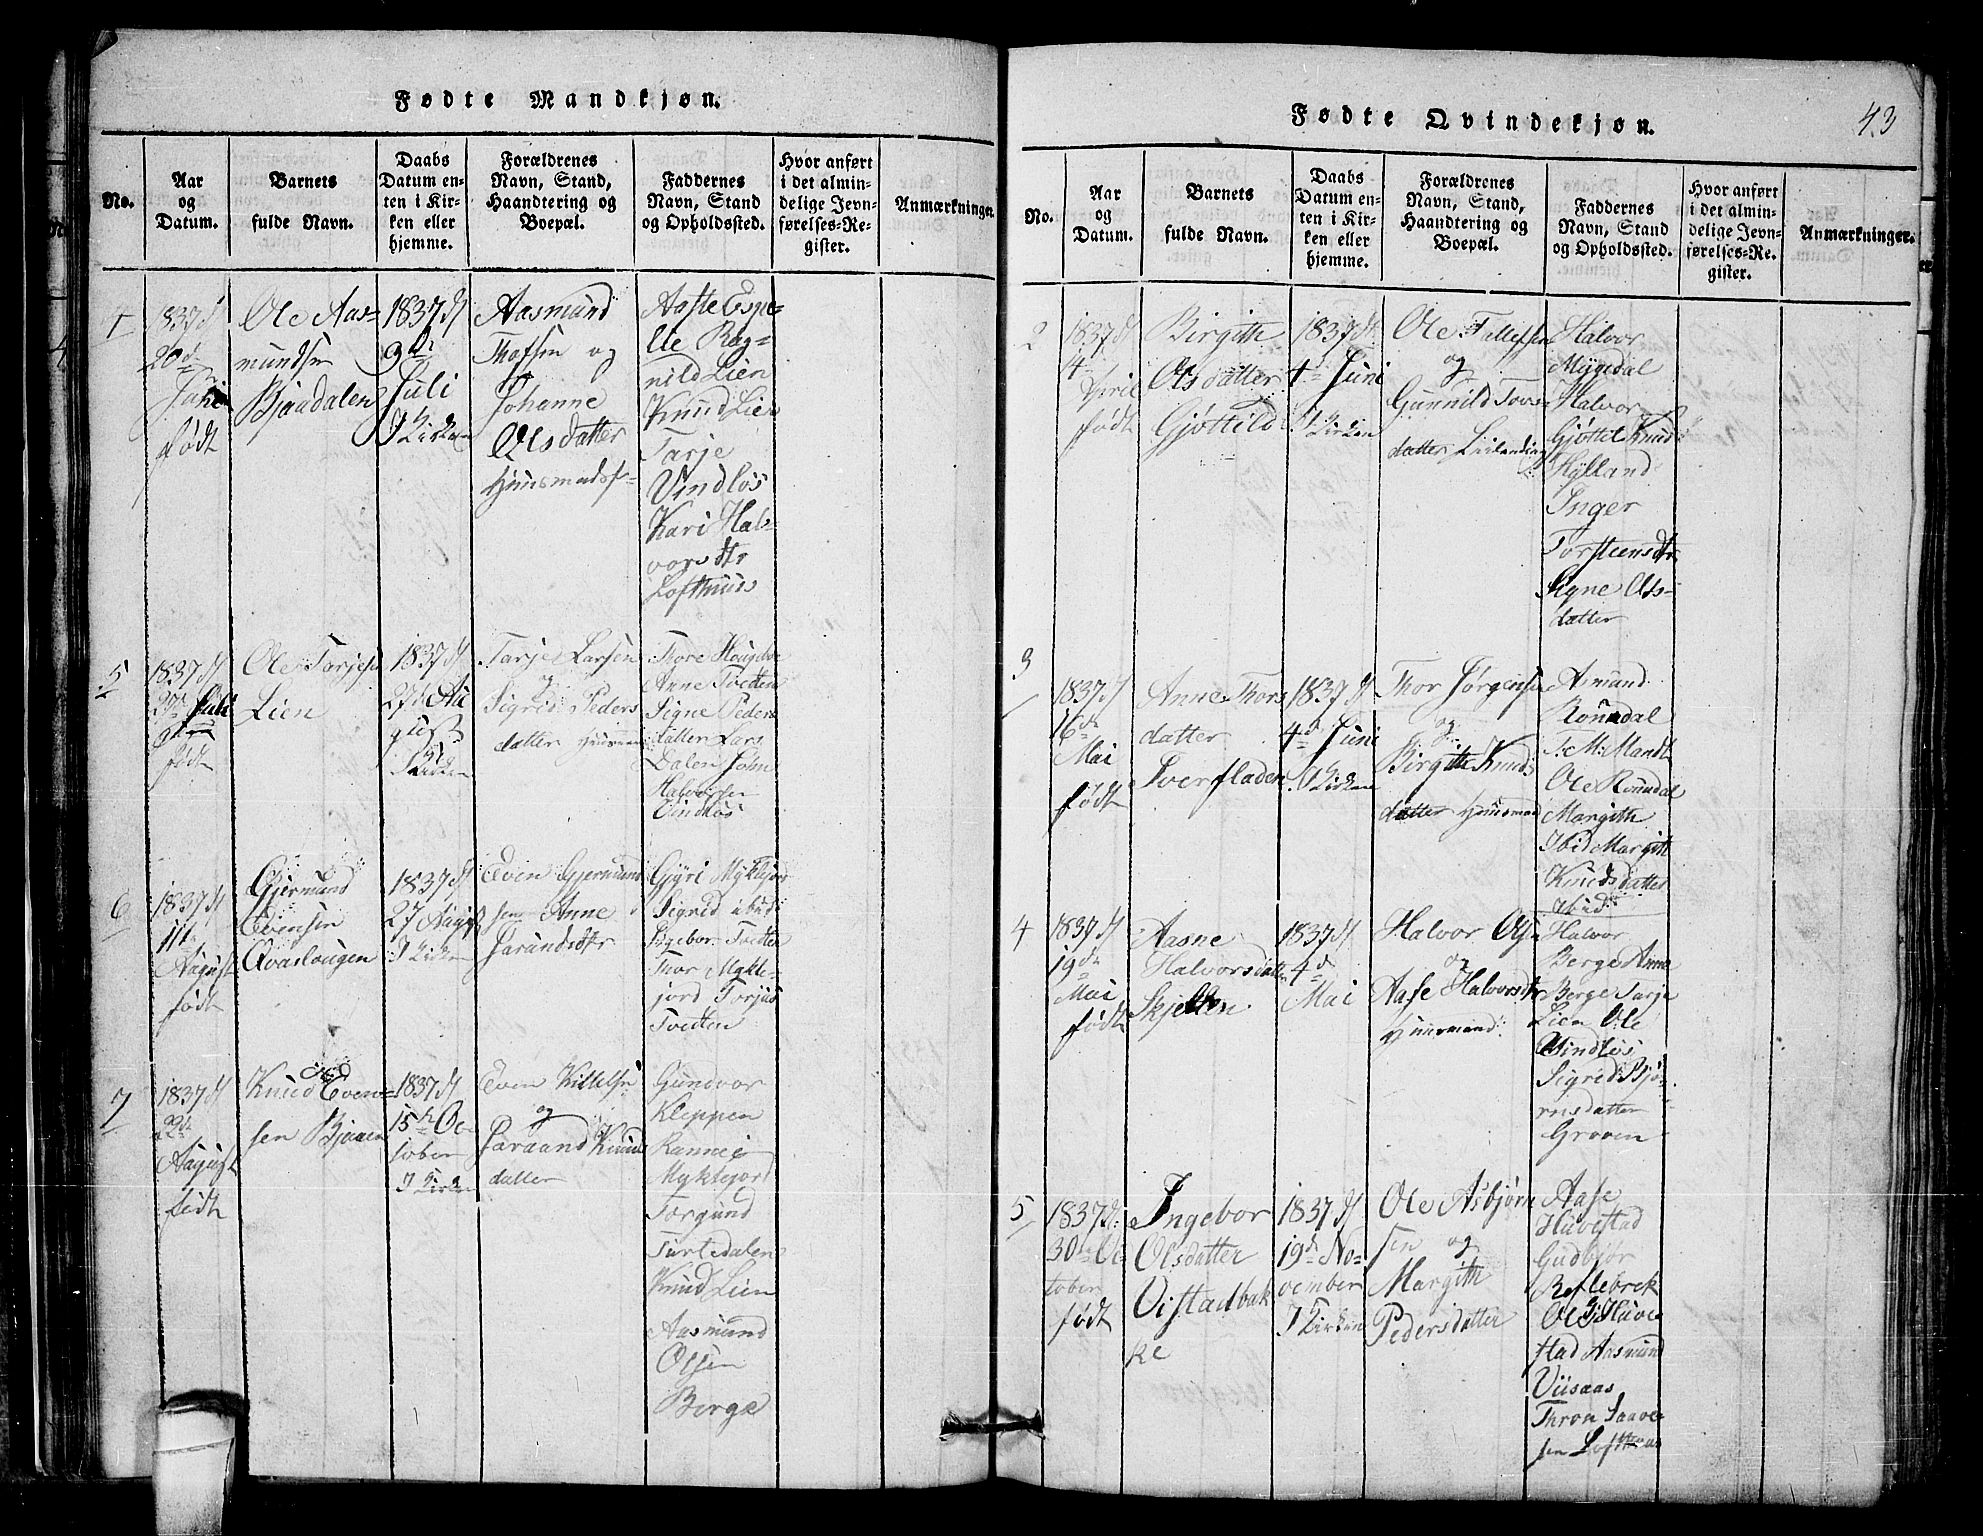 Fødte Mandkjøn.
No.
Aar
og
Datum.
Barnets
fulde Navn.
Daabs
Datum en-
ten i Kir-
ken eller
hjemme.
Forældrenes
Navn, Stand,
Haandtering og
Boepæl.
Faddernes
Navn, Stand
og Opholdssted.
Hvor anført
i det almin-
delige Jevn-
førelses-Re-
gister.
Anmærkninger.
4
1837 d
20de
født
Ole Aas-
mundsen
Bjaadalen
1837 d
9de
Juli
I Kirken
Aasmund
og
Johanne
Olsdatter
Aaste Espe-
lie Rag-
nild Lien
Knud Lien
Tarje
Vindløs
Kari Hal-
vorsdtr
Lofthuus
5
1837 d
Juli
født
Ole Tarjesen
Lien
1837 d
27de Au
gust
I Kirken
Tarje Larsen
og
Sigrid Peders
datter
Thore
Anne Tvedten
Signe Peders
datter Lars
Dalen John
Halvorsen
Vindløs
6
1837 d
11te
August
født
Gjermund
Evensen
Qvaslaugen
1837 d
27 August
I Kirken
Even Gjermund
sen Anne
Jarandsdtr
Gyri Myklejord
Sigrid ibid
Ingebor Tvedten
Thor Mykle-
jord Torjus
Tvedten
7
1837 d
22de
August
født
Knud Even-
sen Bjaaen
1837 d
15de Oc
tober
I Kirken
Even Kittelsen
og
Jaraand Knuds
datter
Gundvor
Kleppen
Rannei
Myklejord
Torgund
Turtedalen
Knud Lien
Aasmund
Olsen
Berge
Fødte Qvindekjøn.
43
No.
Aar
og
Datum.
Barnets
fulde Navn.
Daabs
Datum en-
ten i Kir-
ken eller
hjemme.
Forældrenes
Navn, Stand,
Haandtering og
Boepæl.
Faddernes
Navn, Stand
og Opholdssted.
Hvor anført
i det almin-
delige Jevn-
førelses-Re-
gister.
Anmærkninger.
2
1837 d
4de
April
født
Birgith
Olsdatter
Gjøttild
1837 d
4de Juni
I Kirken
Ole Tallefsen
og
Gunnild Tovs-
datter
Halvor
Mygedal
Halvor
Gjøttel Knud
Kylland
Inger
Torsteensdtr
Signe Ols-
datter
3
1837 d
16de
Mai
født
Anne Thors
datter
Sverfladen
1837 d
4de Juni
I Kirken
Thor Jørgensen
og
Birgith Knuds
datter Huusmand
Amund
Rønndal
T. M. Mandt
Ole Rønndal
Margith
Ibid Margith
Knudsdatter
Ibid
4
1837 d
19de
Mai
født
Aasne
Halvorsdatter
1837 d
4de
Mai
Halvor Olsen
og
Aase Halvorsdtr
Huusmand
Halvor
Berge Anne
Berge Tarje
Lien Ole
Vindløs
Sigrid Bjø-
rnsdatter
Groven
5
1837 d:
30te Oc-
tober
født
Ingebor
Olsdatter
Vistadbak
ke
1837 d
19de No-
vember
I Kirken
Ole Asbjørn
sen og
Margith
Pedersdatter
Aase
Havestad
Gudbjør
Reflebrek
Ole Have
stad Aasmund
Viisaas
Thron Saave-
sen Lofthuus